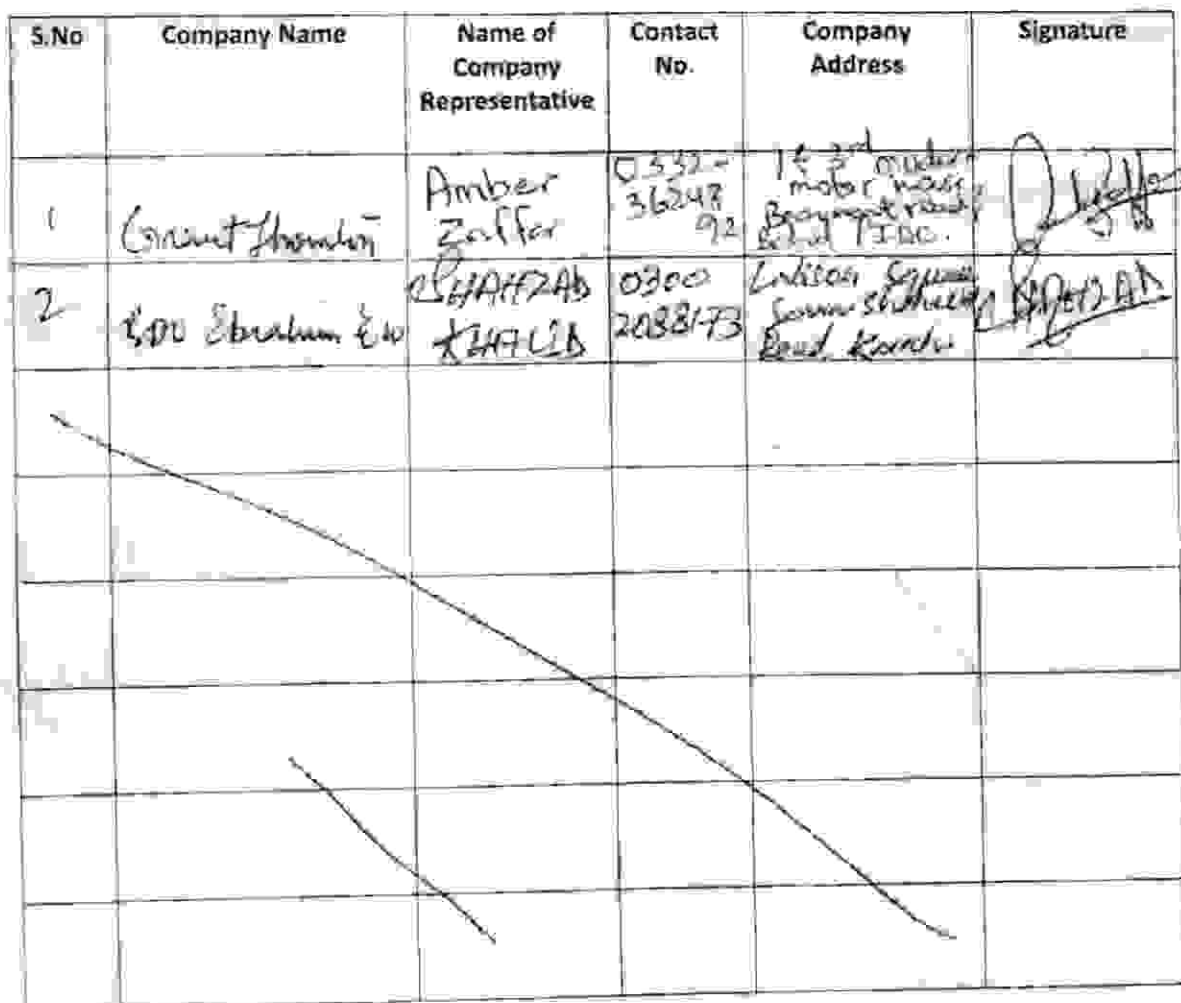 S.No Company Name Name of Company Representative Contact No. Company Address Signature
1 Grant Thornton Amber Zaffar 0332-3624792 1st 3rd modern motor house Beaumont road PIDC.
2 BDO Ebrahim & Co SHAHZAD KHALID 0300 2088173 Lakson Square Sarwar Shaheed Road Karachi SHAHZAD